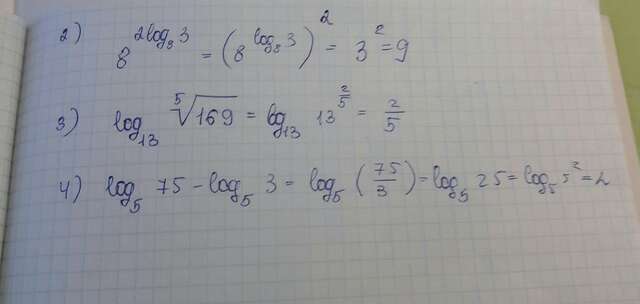 2) 8^{2log_8 3} = (8^{log_8 3})^2 = 3^2 = 9
3) log_{13} \sqrt[5]{169} = log_{13} 13^{\frac{2}{5}} = \frac{2}{5}
4) log_5 75 - log_5 3 = log_5 (\frac{75}{3}) = log_5 25 = log_5 5^2 = 2